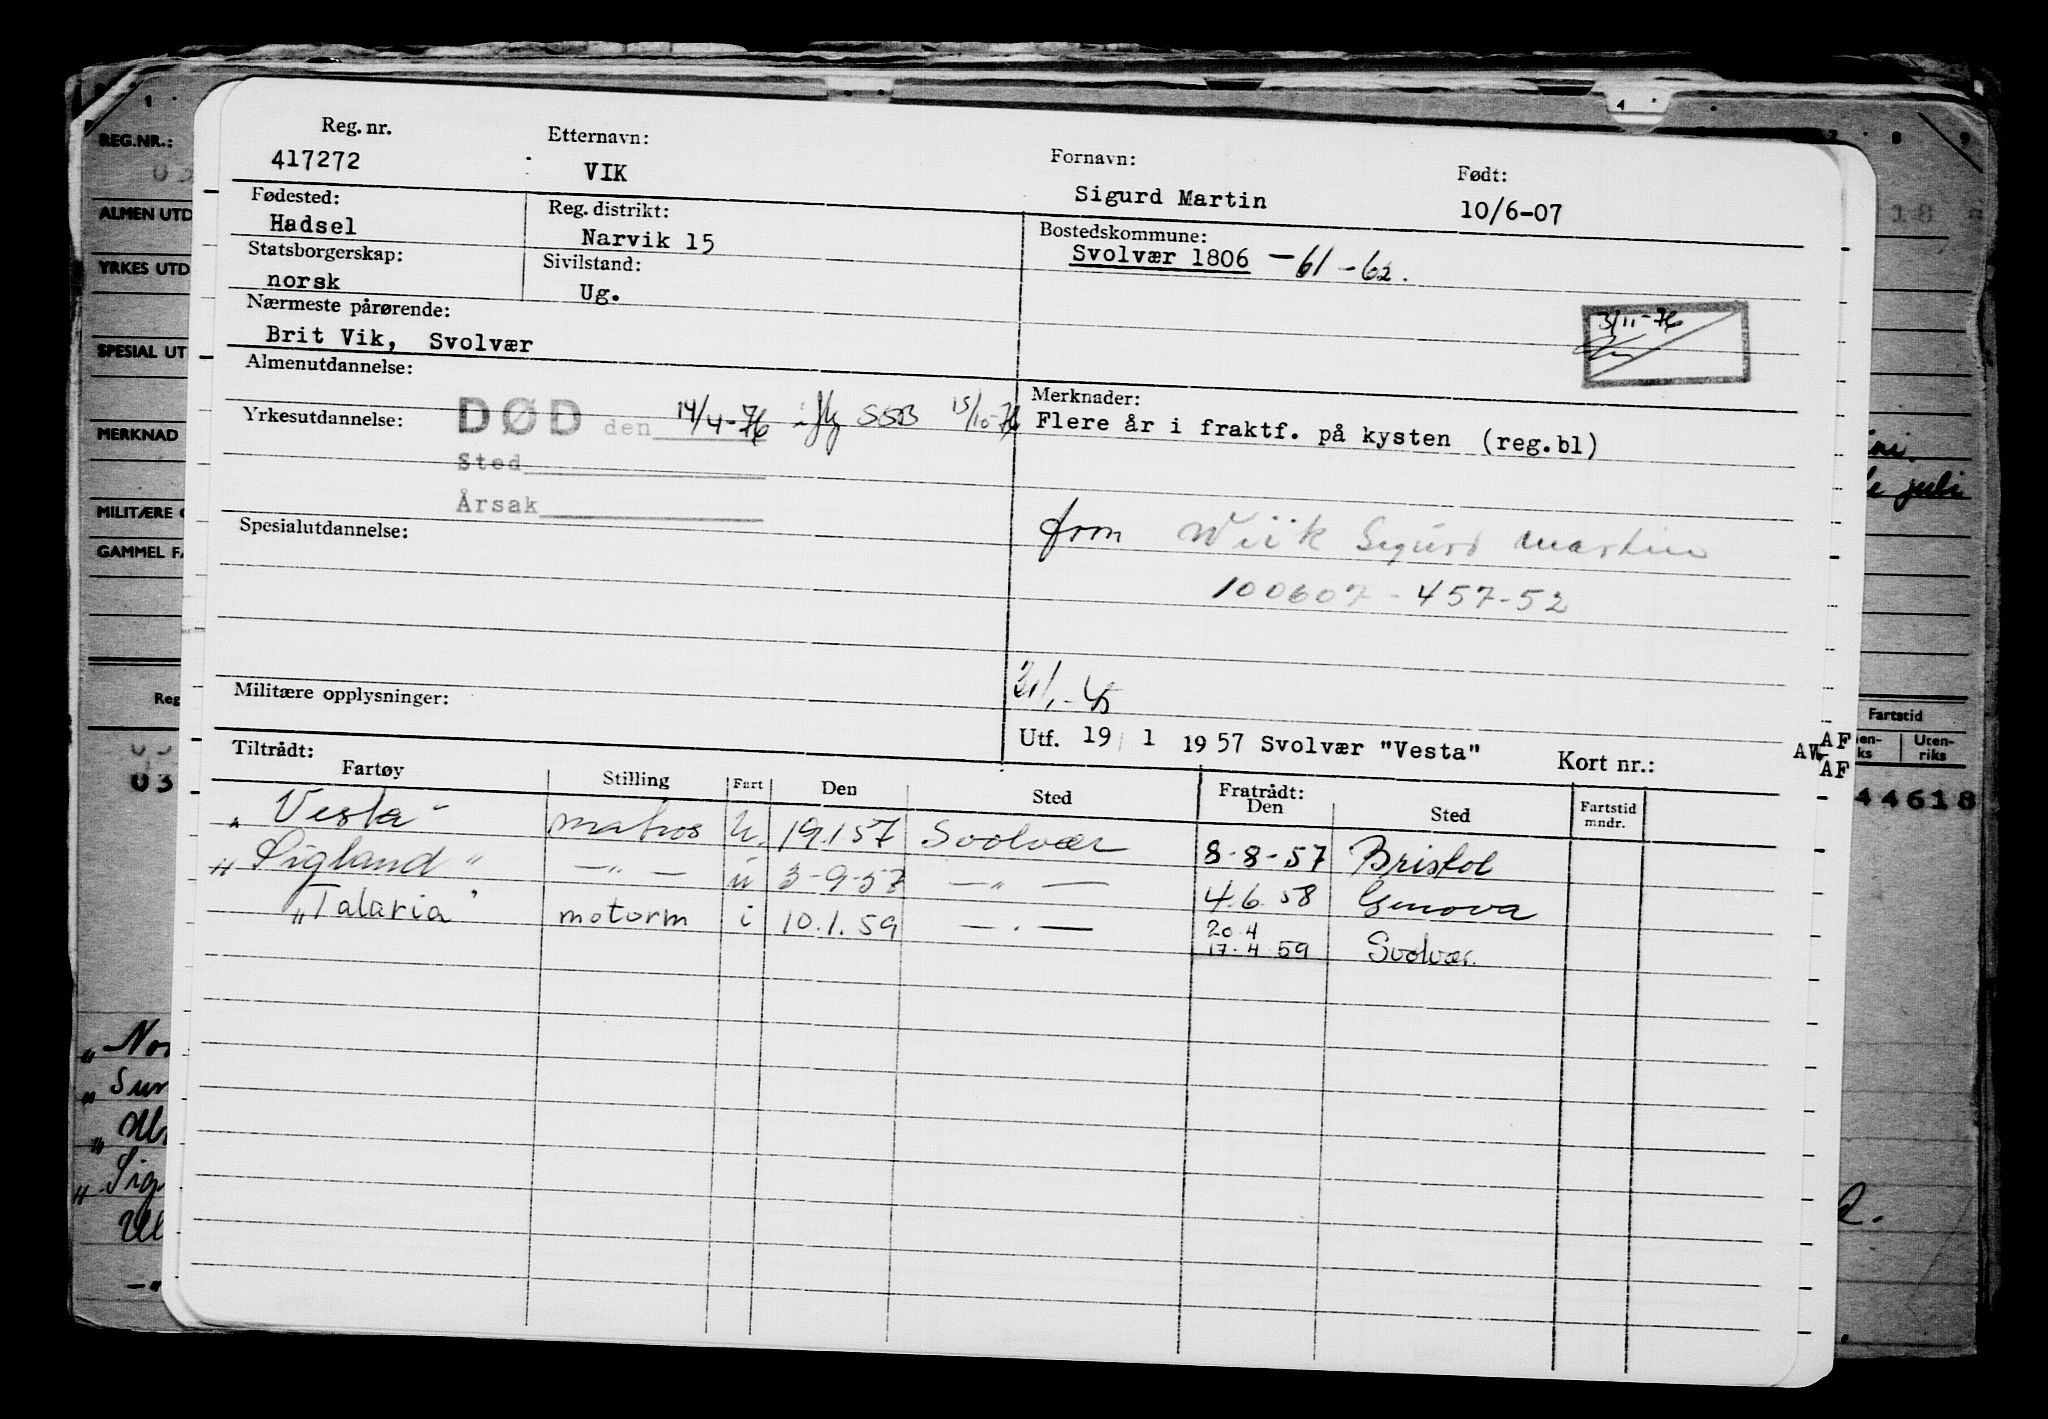 REG.NR.:
ALMEN UTD
YRKES UTD
SPESIAL UT
MERKNAD
MILITÆRE
GAMMEL
Reg
03
Reg. nr.
417272
Etternavn:
VIK
Fornavn:
Sigurd Martin
Født:
10/6-07
Fødested:
Hadsel
Reg. distrikt:
Narvik 15
Bostedskommune:
Svolvær 1806 -61-62.
Statsborgerskap:
norsk
Sivilstand:
Ug.
Nærmeste pårørende:
Brit Vik, Svolvær
3/11-76
Almenutdannelse:
Yrkesutdannelse:
DØD den 14/4-76 iflg SSB 15/10-76
Sted
Årsak
Merknader:
Flere år i fraktf. på kysten (reg.bl)
Spesialutdannelse:
Wiik Sigurd Martin
100607-457-52
Militære opplysninger:
Utf. 19 / 1 1957 Svolvær "Vesta" Kort nr.:
AW
AF
AF
Tiltrådt:
Fartøy Stilling Fart Den Sted
Fratrådt:
Den Sted Fartstid mndr.
"Vesta" matros u. 19.1.57 Svolvær 8-8-57 Bristol
"Sigland" —"— u 3-9-57 —"— 4.6.58 Genova
"Talaria" motorm i 10.1.59 —"— 20.4
17.4.59 Svolvær.
juli
Fartstid
Uten-
riks
44618